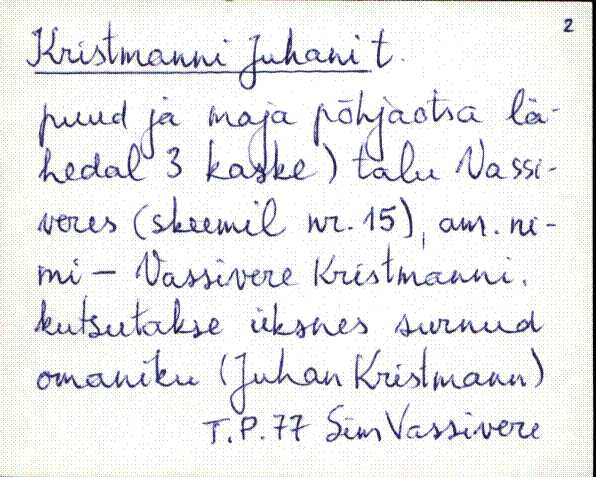 2
Kristmanni Juhani t.
puud ja maja põhjaotsa lä-
hedal 3 kaske) talu Vassi-
veres (skeemil nr. 15), am. ni-
mi – Vassivere Kristmanni.
kutsutakse üksnes surnud
omaniku (Juhan Kristmann)
T.P.77 Sim Vassivere